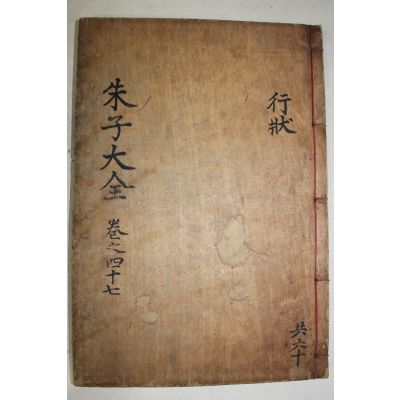 行狀
朱子大全 卷之四十七
共六十